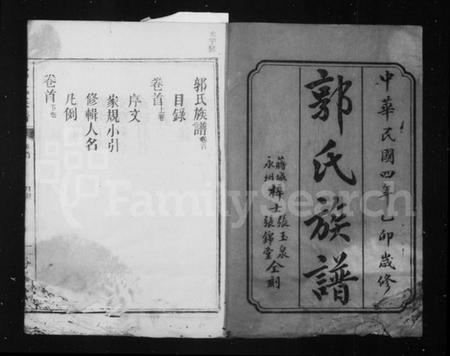 中華民國四年乙卯歲修
郭氏族譜
梓士張玉泉
張錦堂仝刻
郭氏族譜卷首
目錄
卷首上卷
序文
家規小引
修輯人名
凡例
卷首下卷
FamilySearch